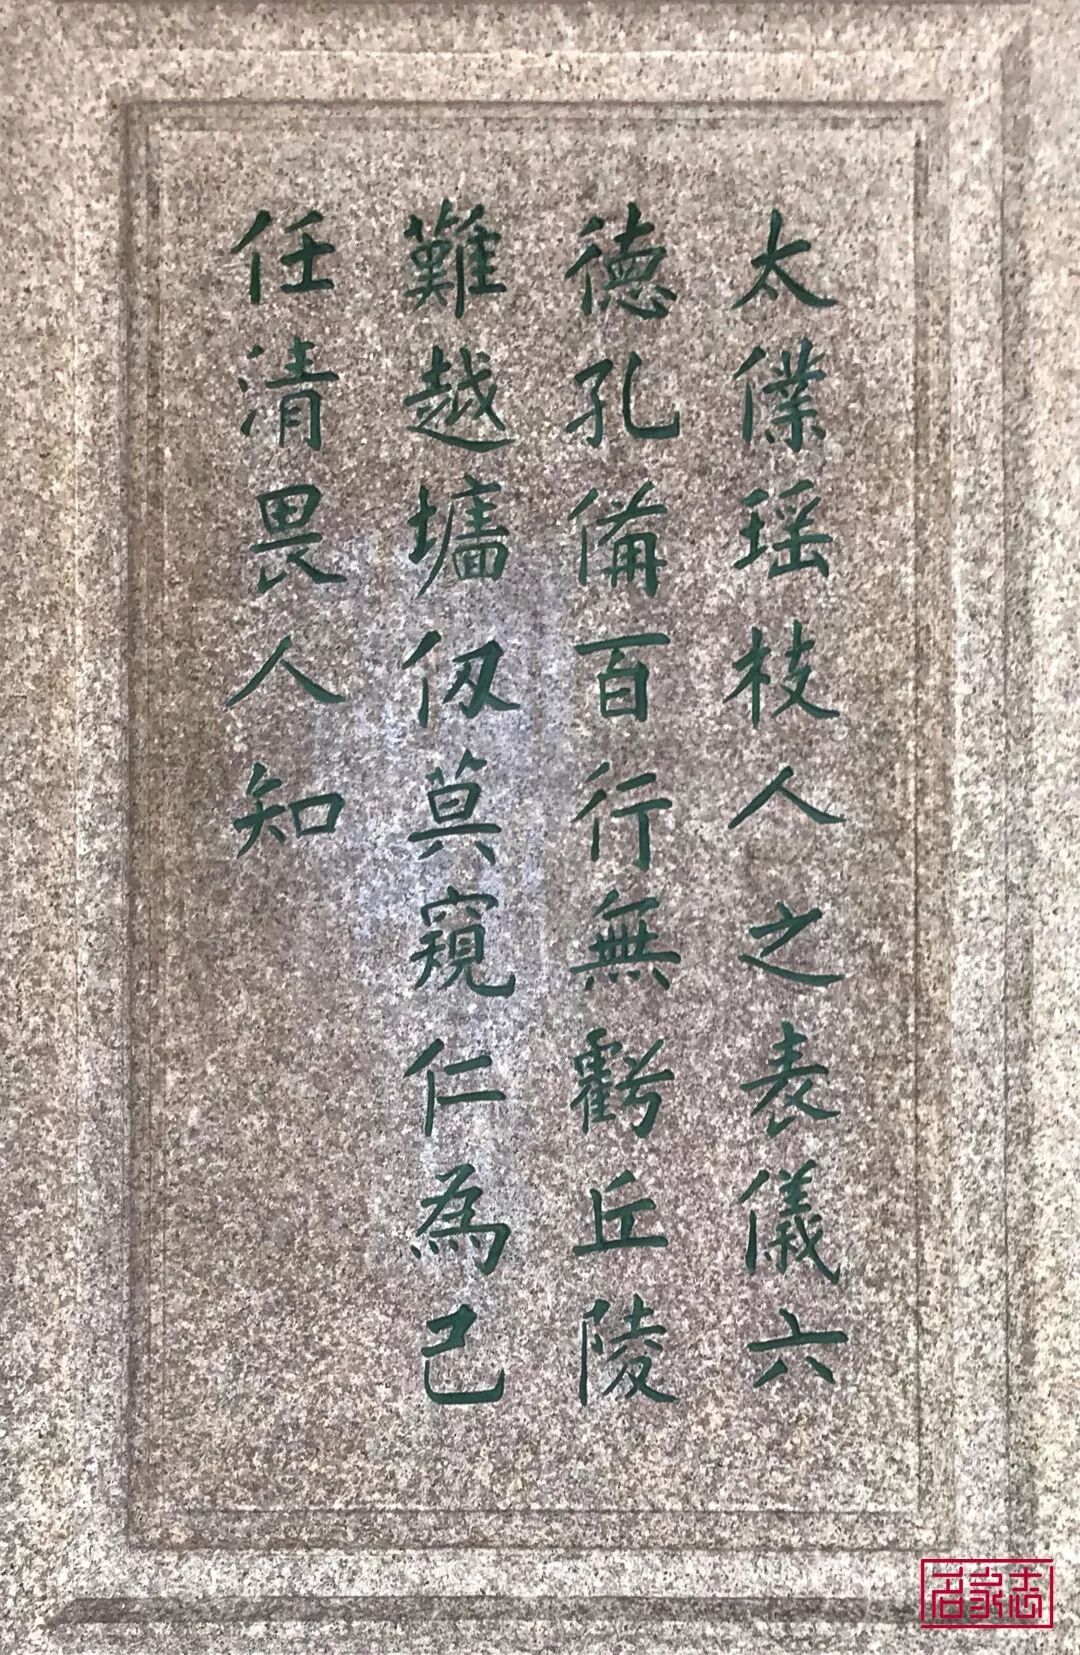 太僕瑶枝人之表儀六
德孔備百行無虧丘陵
難越墉仭莫窺仁為己
任清畏人知
名家志